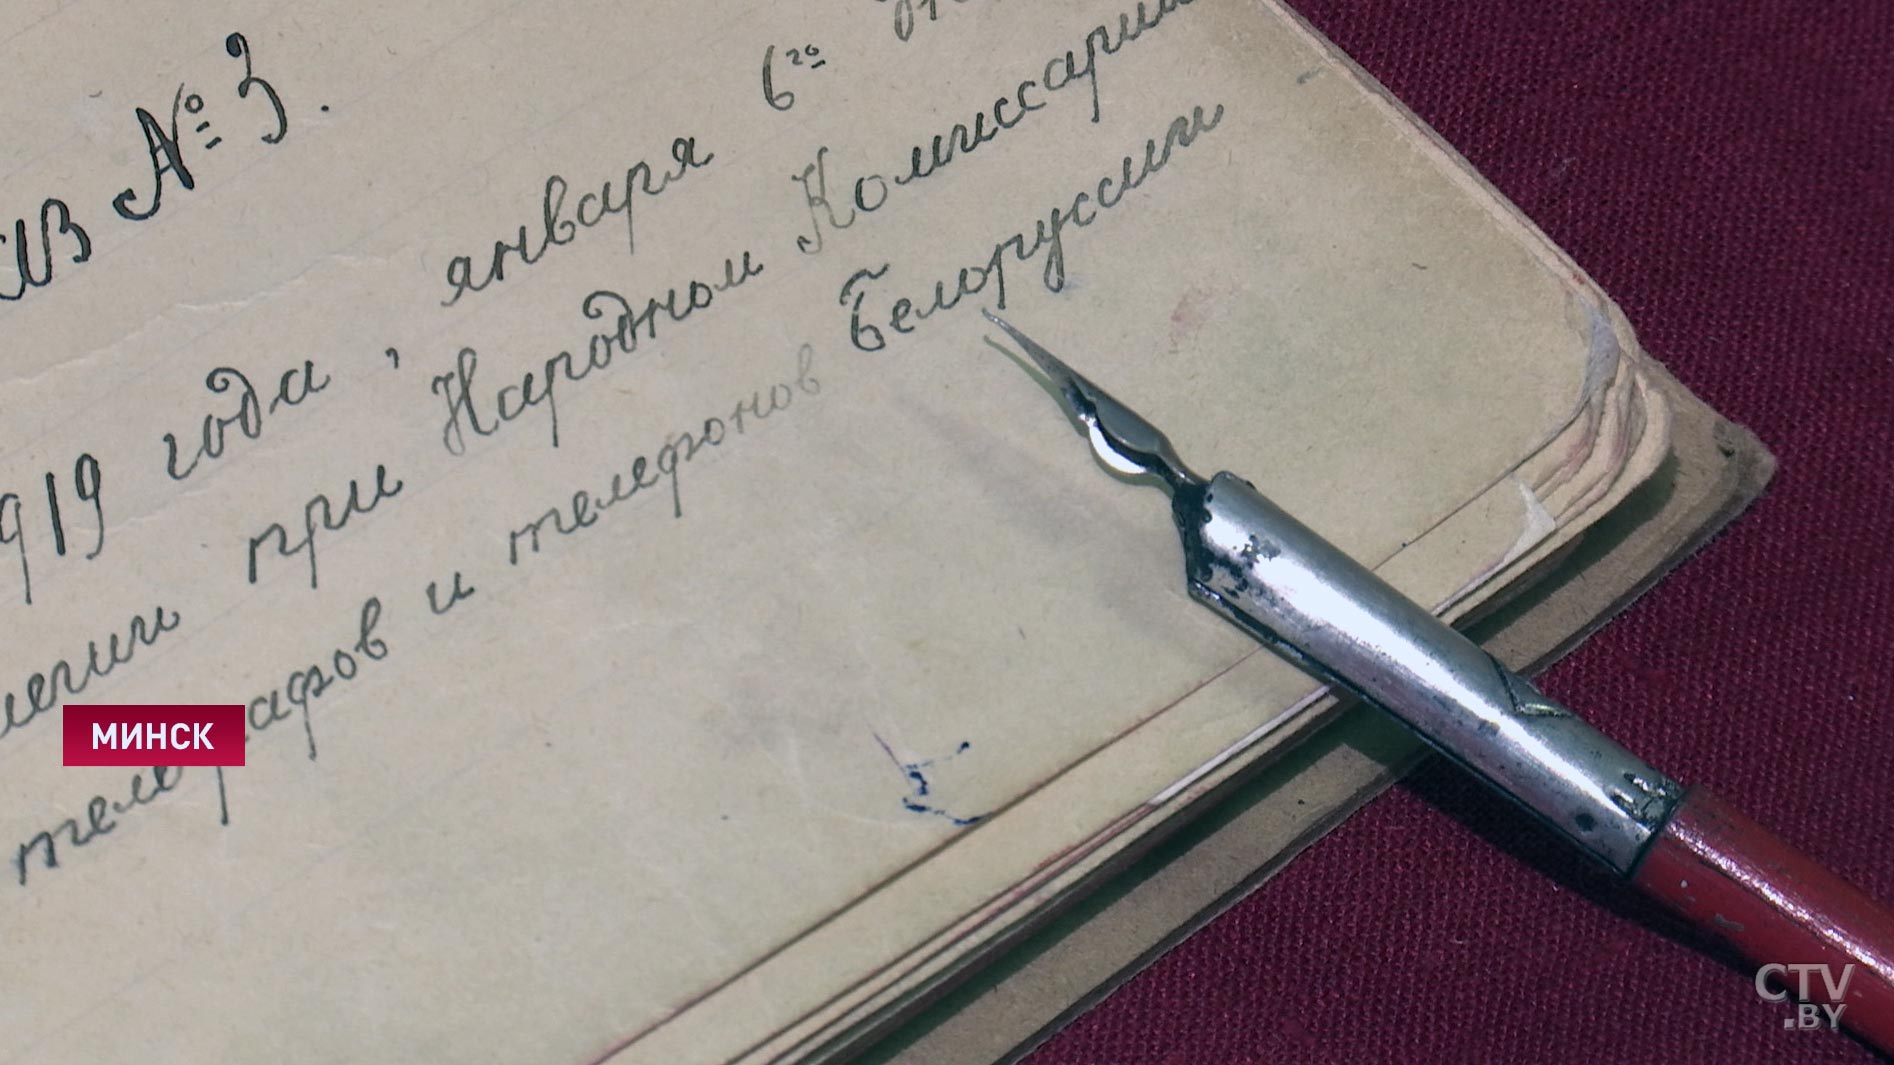 № 3.
1919 года, января 6го
при Народном Комиссари
телеграфов и телефонов Белоруссии
МИНСК
CTV
.BY